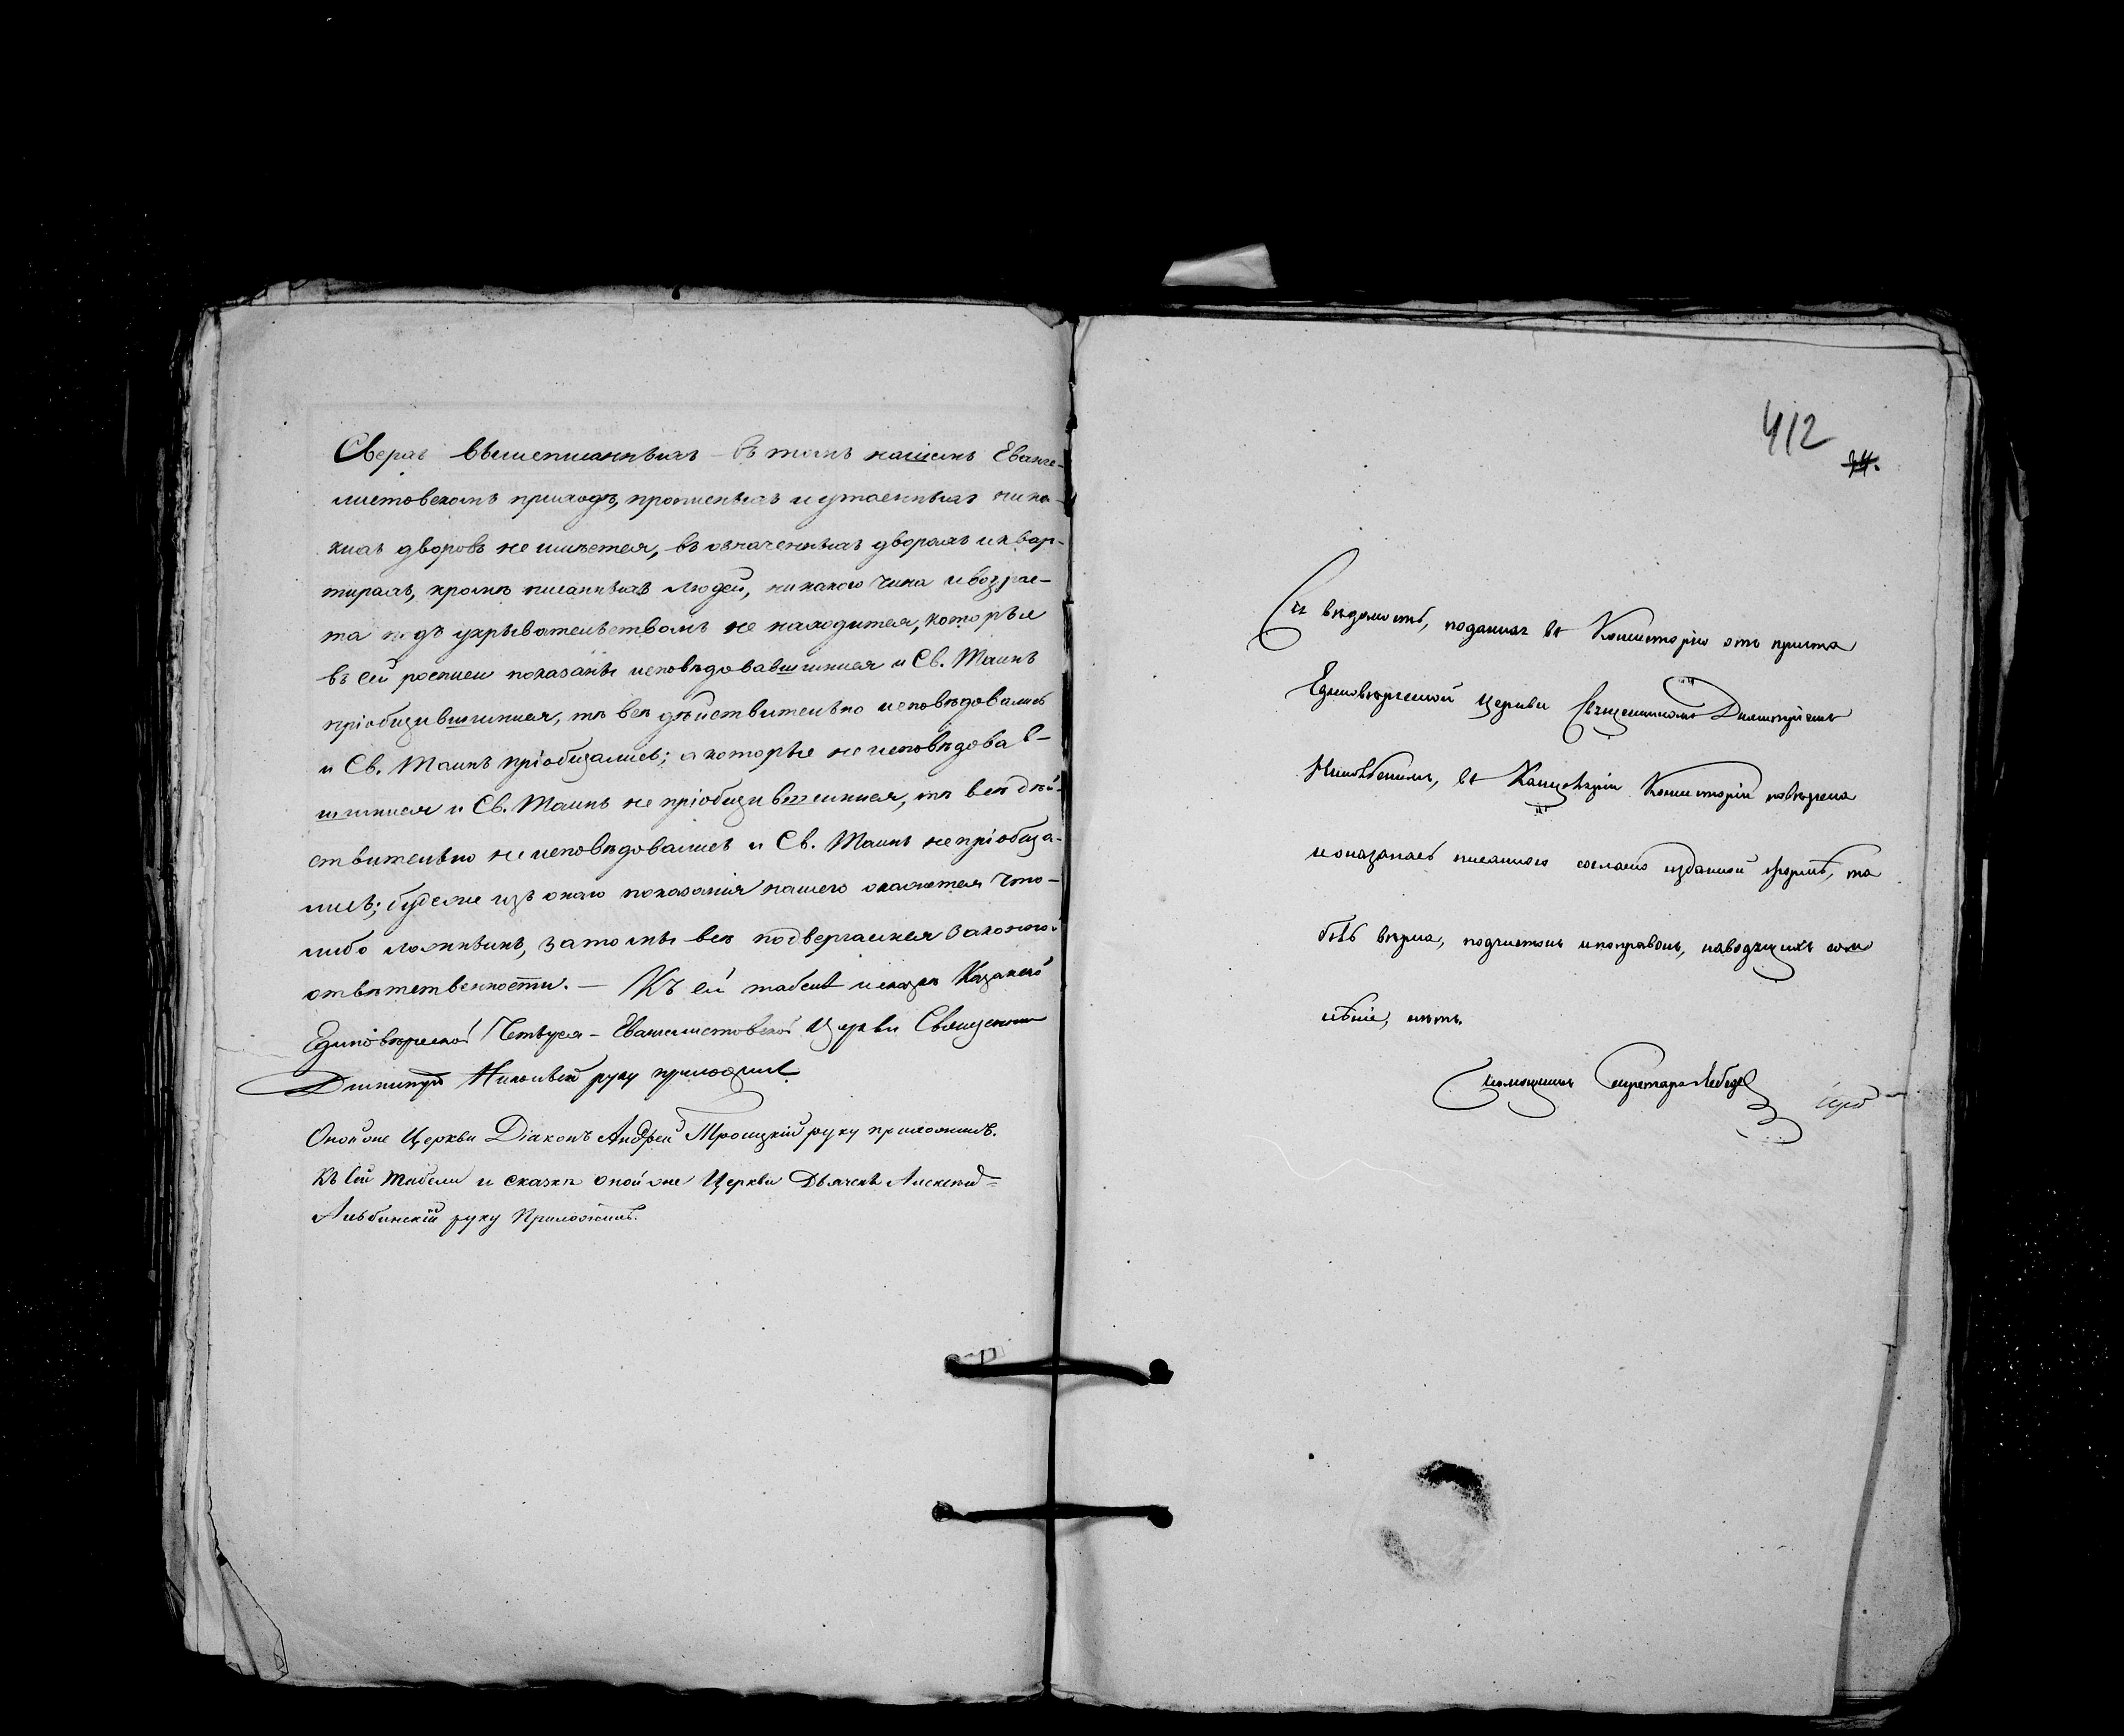 Сверхъ вышеписанныхъ – въ томъ нашемъ Еванге-
листовскомъ приходѣ, прописныхъ и утаенныхъ ника-
кихъ дворовъ не имѣется, въ означенныхъ дворахъ и квар-
тирахъ, кромѣ писанныхъ людей, никакого чина и возрас-
та подъ укрывательствомъ не находится, которые
въ сей росписи показаны исповѣдовавшимися и Св. Таинъ
пріобщившимися, тѣ всѣ дѣйствительно исповѣдовались
и Св. Таинъ пріобщались; а которые не исповѣдовав-
шимися и Св. Таинъ не пріобщившимися, тѣ всѣ дѣй-
ствительно не исповѣдовались и Св. Таинъ не пріобща-
лись; буде же изъ онаго показанія нашего окажется что-
либо ложнымъ, за то мы всѣ подвергаемся законной
отвѣтственности. – Къ сей табели и сказкѣ Казанской
Единовѣрческой Четырех-Евангелистовской Церкви Священникъ
Димитрій руку приложилъ
Оной же Церкви Діаконъ Андрей Троицкій руку приложилъ.
Къ сей Табели и сказкѣ оной же Церкви Дьячекъ Алексѣй
Альбинскій руку Приложилъ.
412
34.
Сія вѣдомость, поданная въ Консисторію отъ причта
Единовѣрческой Церкви Священникомъ Димитріемъ
въ Канцеляріи Консисторіи повѣрена
и оказалась писанною согласно изданной формѣ, та
бѣль вѣрна, подчистокъ и поправокъ, наводящихъ сом
нѣніе, нѣтъ.
Помощникъ Секретаря Лебедев